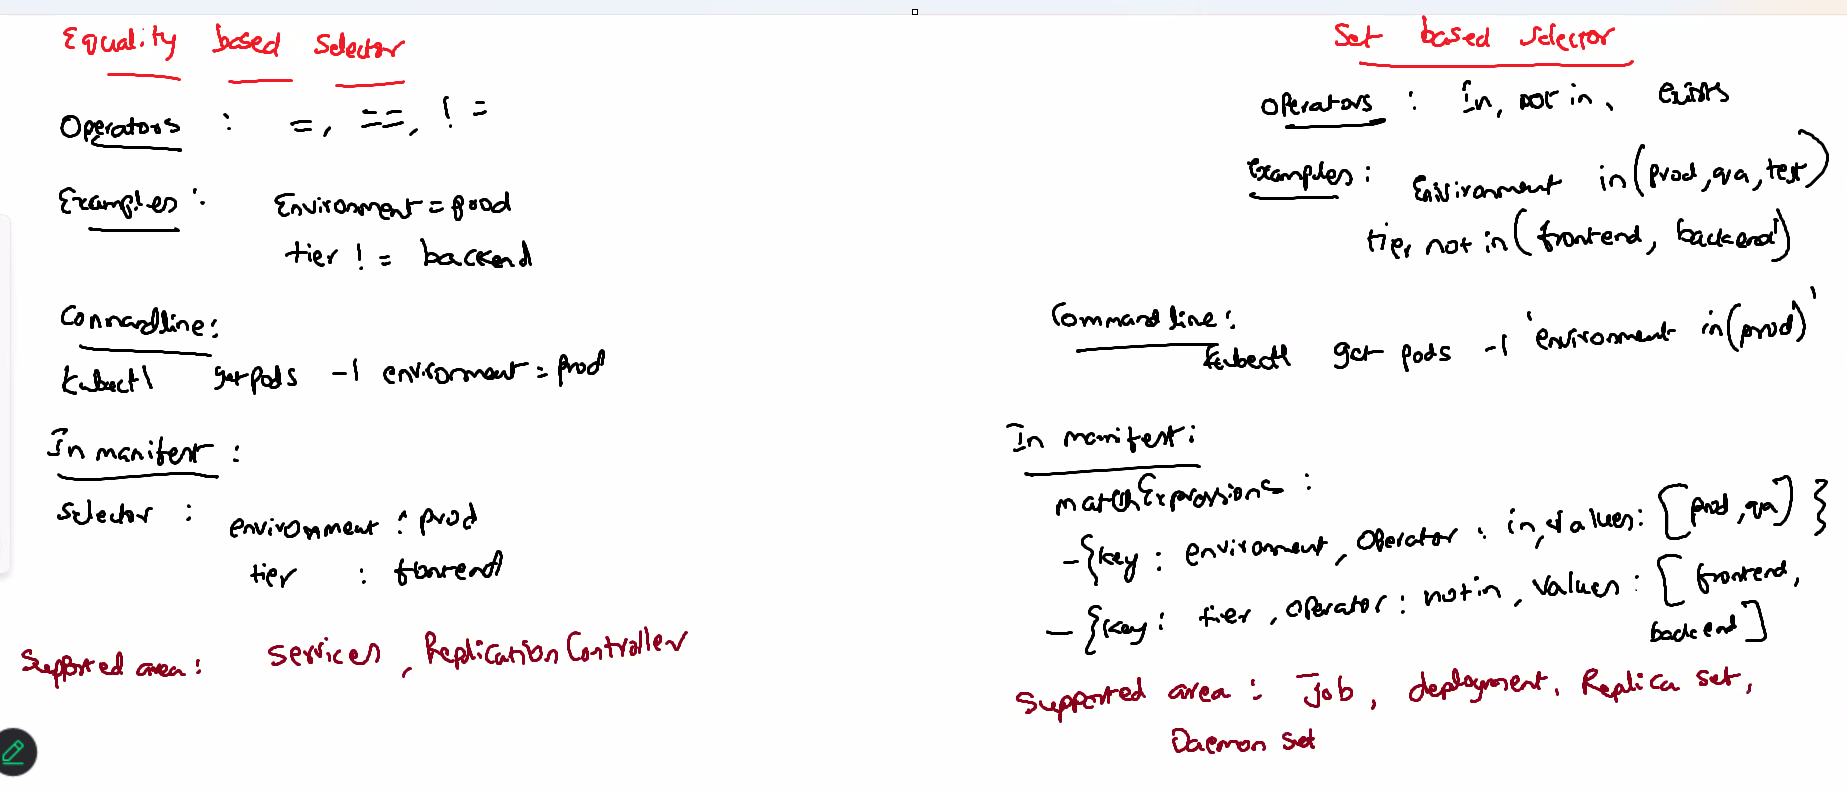 Equality based selector
Operators : =, ==, !=
Examples : Environment = prod
tier != backend
Commandline :
kubectl get pods -l environment = prod
In manifest :
selector : environment : prod
tier : frontend
Supported area : services, Replication Controller
Set based selector
Operators : In, not in, exists
Examples : Environment in (prod, qa, test)
tier not in (frontend, backend)
Command line :
kubectl get pods -l 'environment in (prod)'
In manifest :
matchExpressions :
- {key : environment, Operator : in, values : [prod, qa] }
- {key : tier, operator : notin, values : [frontend,
backend]
Supported area : Job, deployment, Replica set,
Daemon set